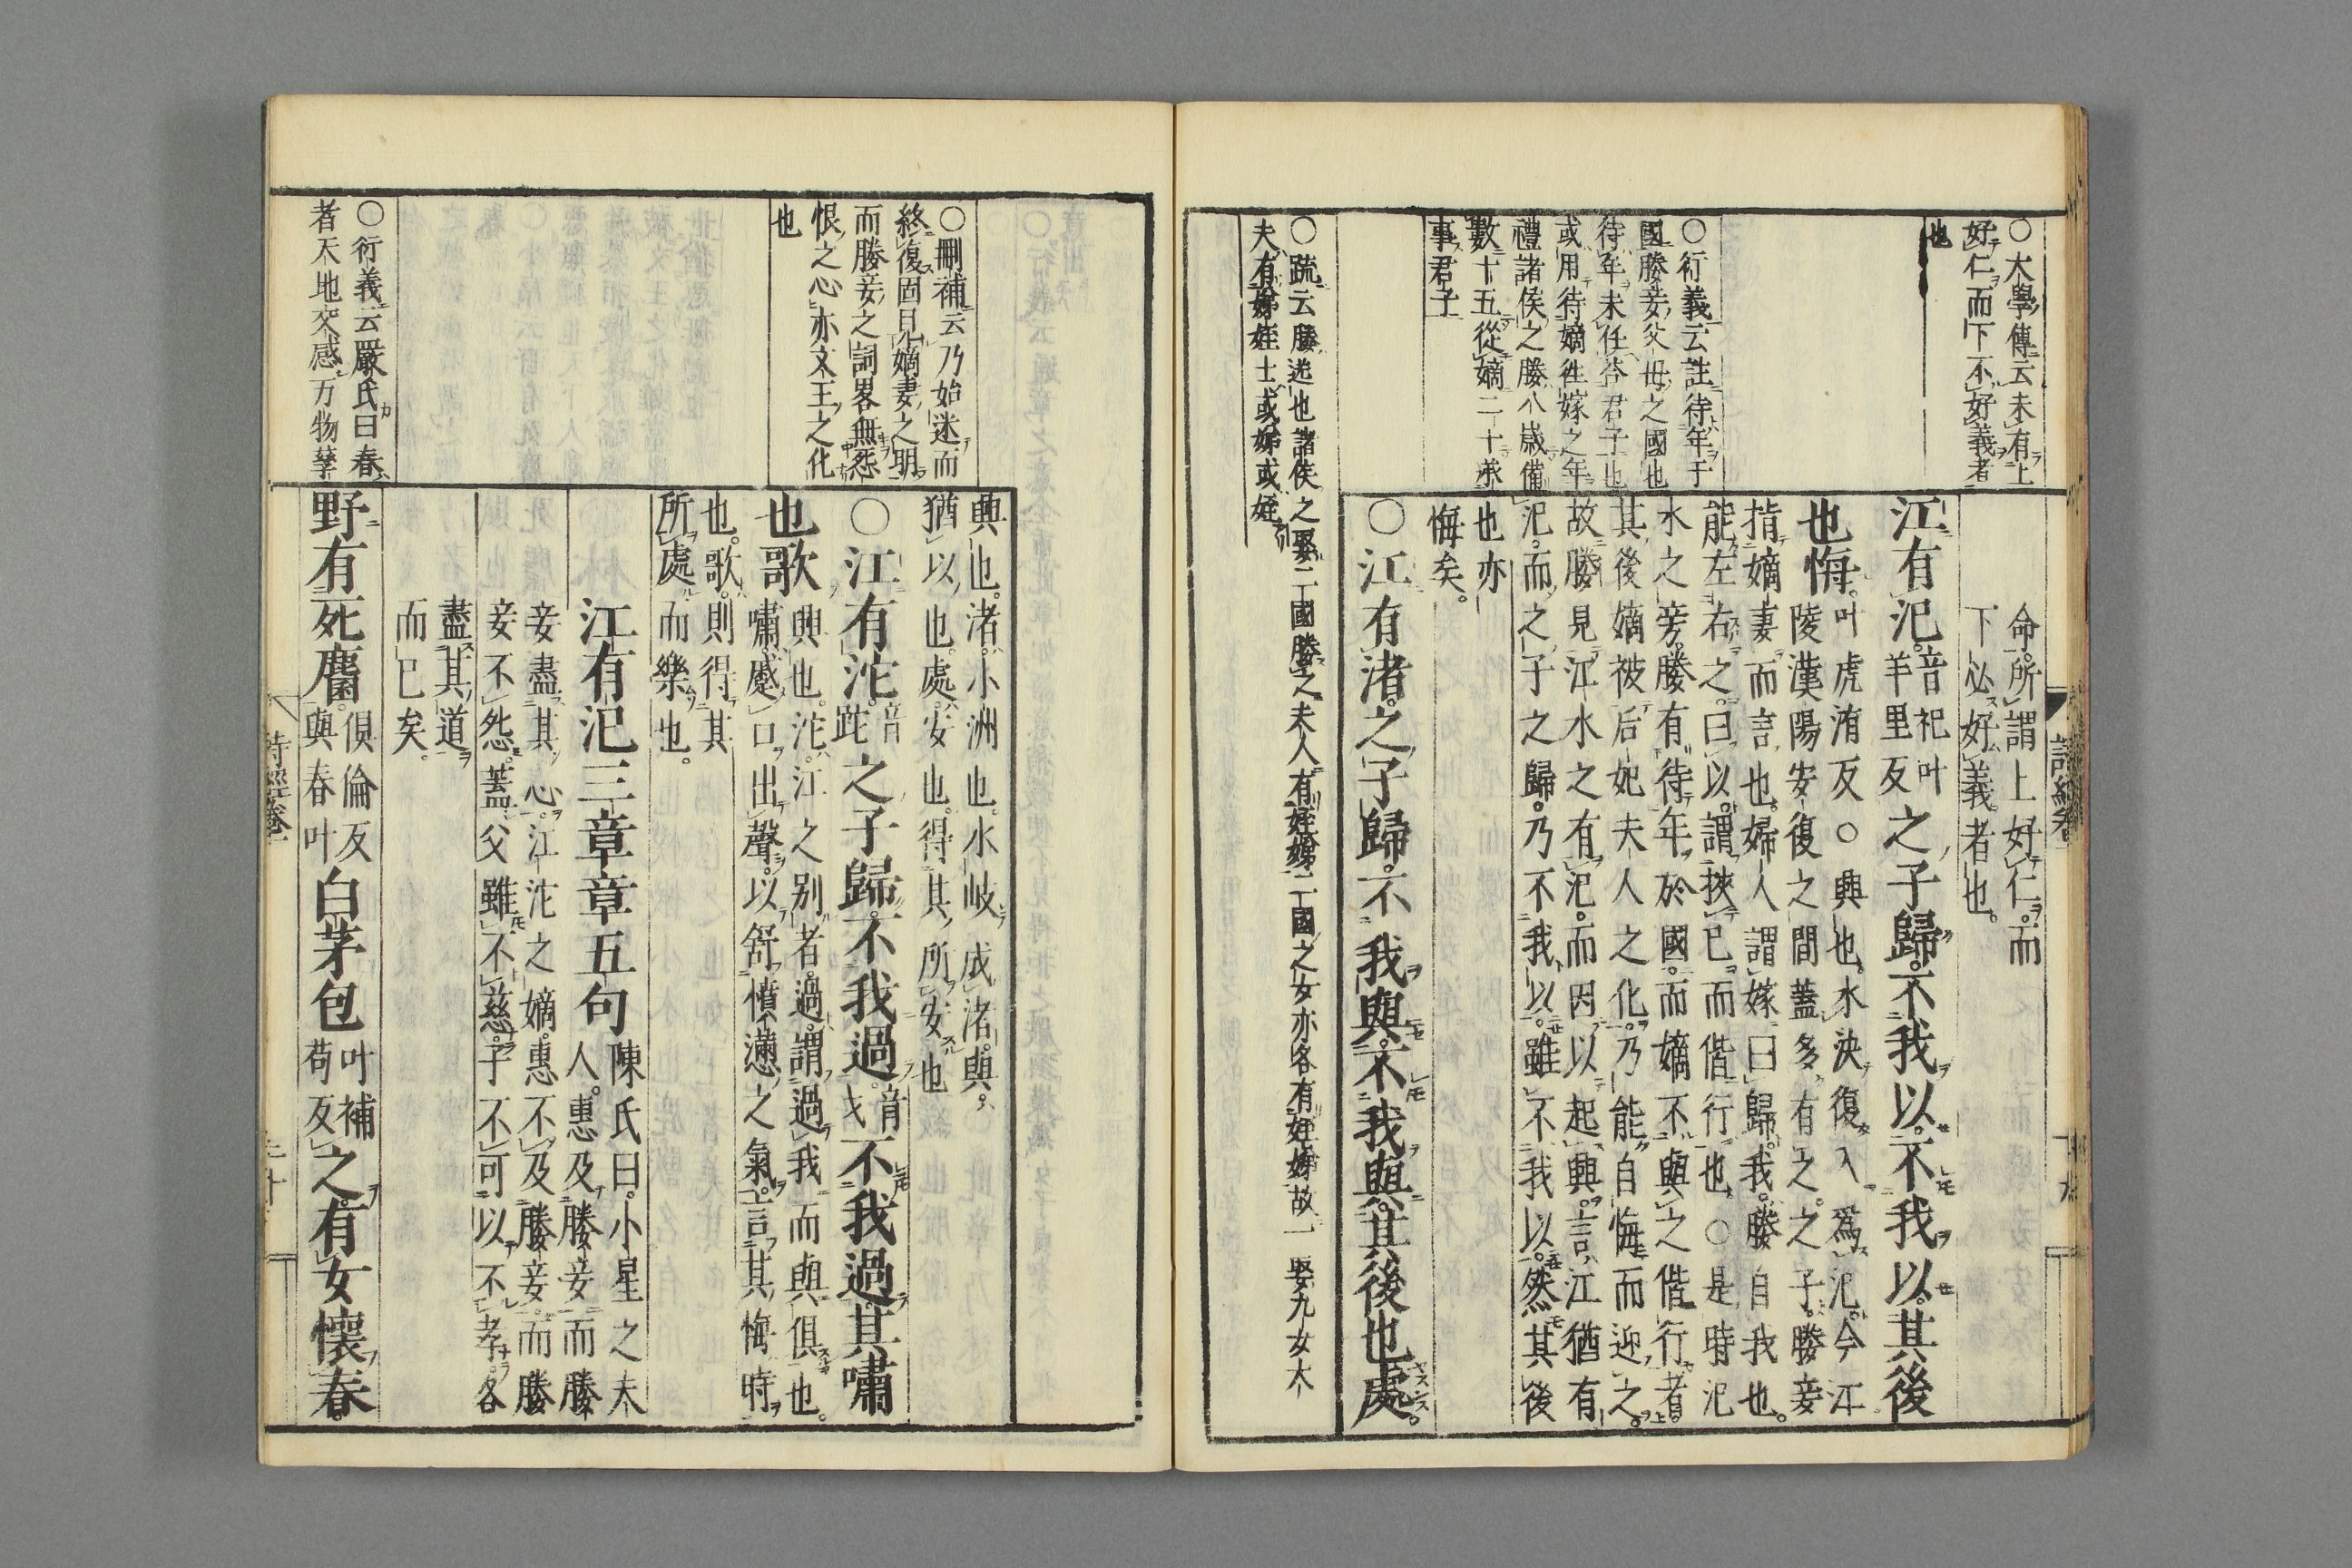 ○大學傳云未有上
好仁而下不好義者
也
○衍義云註待年于
國媵妾父母之國也
待年未任荅君子也
或用待嫡徃嫁之年
禮諸侯之媵八歲備
數十五從嫡二十羕
事君子
命所謂上好仁而
下必好義者也
江有汜音祀叶羊里反之子歸不我以不我以其後
也悔叶虎洧反○興也水決復入爲汜今江
陵漢陽安復之間蓋多有之之子媵妾
指嫡妻而言也婦人謂嫁曰歸我媵自我也
能左右之曰以謂挾已而偕行也○是時汜
水之旁媵有待年於國而嫡不與之偕行者
其後嫡被后妃夫人之化乃能自悔而迎之
故媵見江水之有汜而因以起興言江猶有
汜而之子之歸乃不我以雖不我以然其後
也亦
悔矣
○江有渚之子歸不我與不我與其後也處
○疏云媵送也諸侯之娶二國媵之夫人有姪娣二國之女亦各有姪娣故一娶九女大
夫有娣姪士或娣或姪
○刪補云乃始迷而
終復固見嫡妻之明
而媵妾之詞畧無怨
恨之心亦文王之化
也
○衍義云嚴氏曰春
者天地交感万物孳
興也渚小洲也水岐成渚與
猶以也處安也得其所安也
○江有沱音跎之子歸不我過音戈不我過其嘯
也歌興也沱江之别者過謂過我而與俱也
嘯蹙口出聲以舒憤懣之氣言其悔時
也歌則得其
所處而樂也
江有汜三章章五句陳氏曰小星之夫
人惠及媵妾而媵
妾盡其心江沱之嫡惠不及媵妾而媵
妾不怨蓋父雖不慈子不可以不孝各
盡其道
而已矣
野有死麕俱倫反與春叶白茅包叶補苟反之有女懷春
詩經卷一
二十
詩經卷一
十九